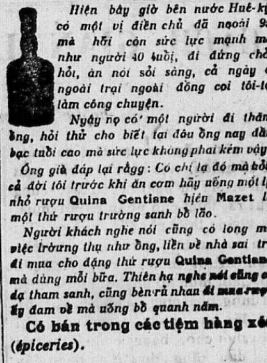 Hiện bây giờ bên nước Huê-kỳ
có một vị điền chủ đã ngoài 9
mà hãi còn sức lực mạnh m
như người 40 tuổi, đi đứng chờ
hỏi, ăn nói sỏi sàng, cả ngày c
ngoài trại ngoài đồng coi tôi-tớ
làm công chuyện.
Ngày nọ có một người đi thăm
ông, hỏi thử cho biết tại đâu ông nay đã
bạc tuổi cao mà sức lực không phai kém vậy
Ông già đáp lại rằgg: Có chi lạ đó mà hỏi
cả đời tôi trước khi ăn cơm hãy uống một ly
nhỏ rượu Quina Gentiane hiệu Mazet l
một thứ rượu trường sanh bổ lão.
Người khách nghe nói cũng có long m
việc trường thọ như ông, liền về nhà sai tr
đi mua cho đặng thứ rượu Quina Gentiane
mà dùng mỗi bữa. Thiên hạ nghe nói cũng c
dạ tham sanh, cũng bèn rủ nhau đi mua rượu
ấy đam về mà uống bổ quanh năm.
Có bán trong các tiệm hàng xé
(épiceries).